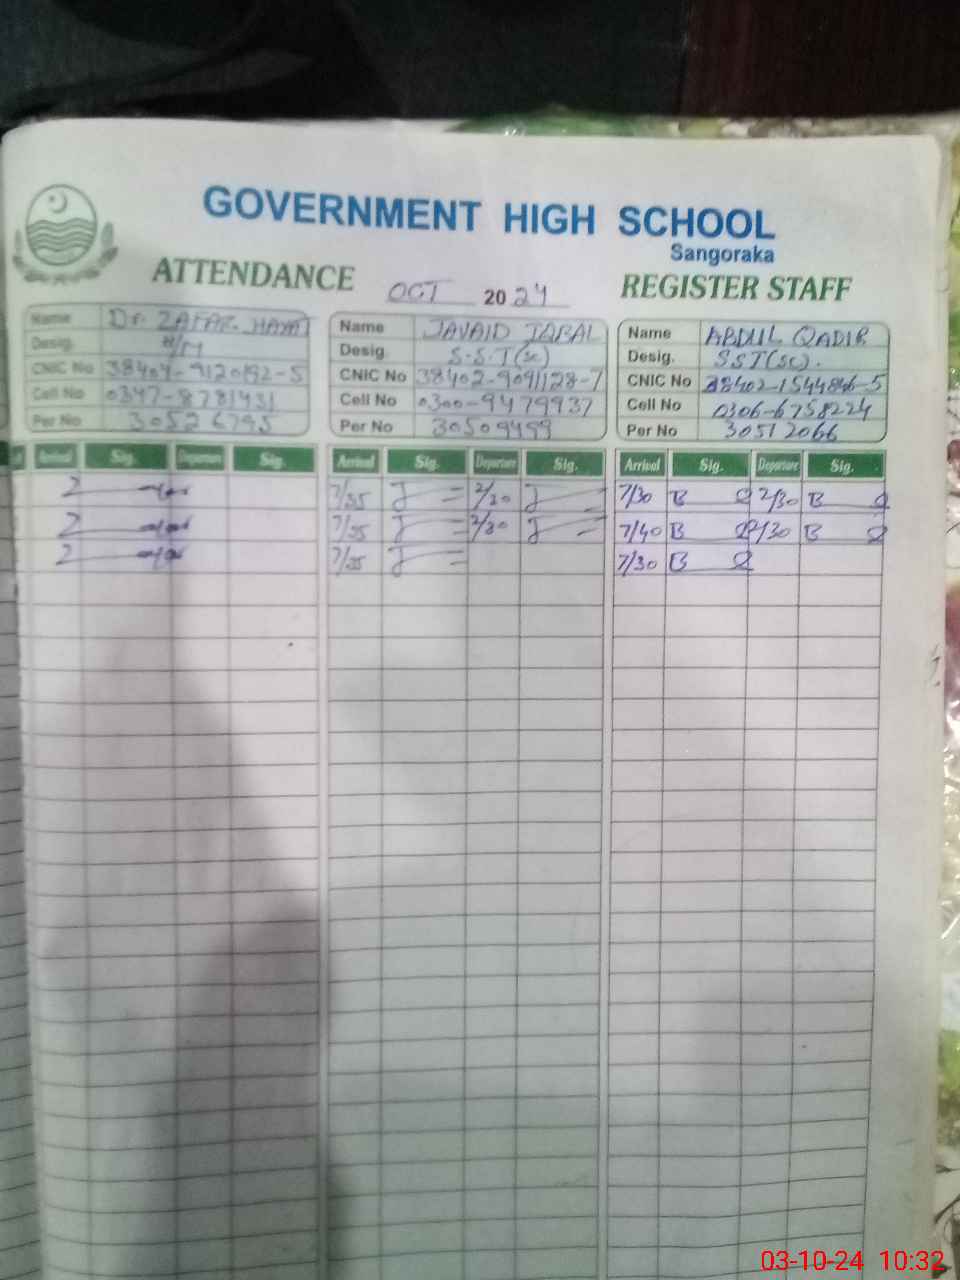 GOVERNMENT HIGH SCHOOL
Sangoraka
ATTENDANCE OCT 2024 REGISTER STAFF
Name Dr. ZAFAR HAYAT
Desig. H/M
CNIC No 38404-9120192-5
Cell No 0347-8781431
Per No 30526795
Name JAVAID IQBAL
Desig. S.S.T(sc)
CNIC No 38402-9091128-7
Cell No 0300-9479937
Per No 30509499
Name ABDUL QADIR
Desig. SST(SC).
CNIC No 38402-1544846-5
Cell No 0306-6758224
Per No 30512066
Arrival Sig. Departure Sig. Arrival Sig. Departure Sig. Arrival Sig. Departure Sig.
7/35 2/30 7/30 2/30
7/35 2/30 7/40 2/30
7/35 7/30
03-10-24 10:32